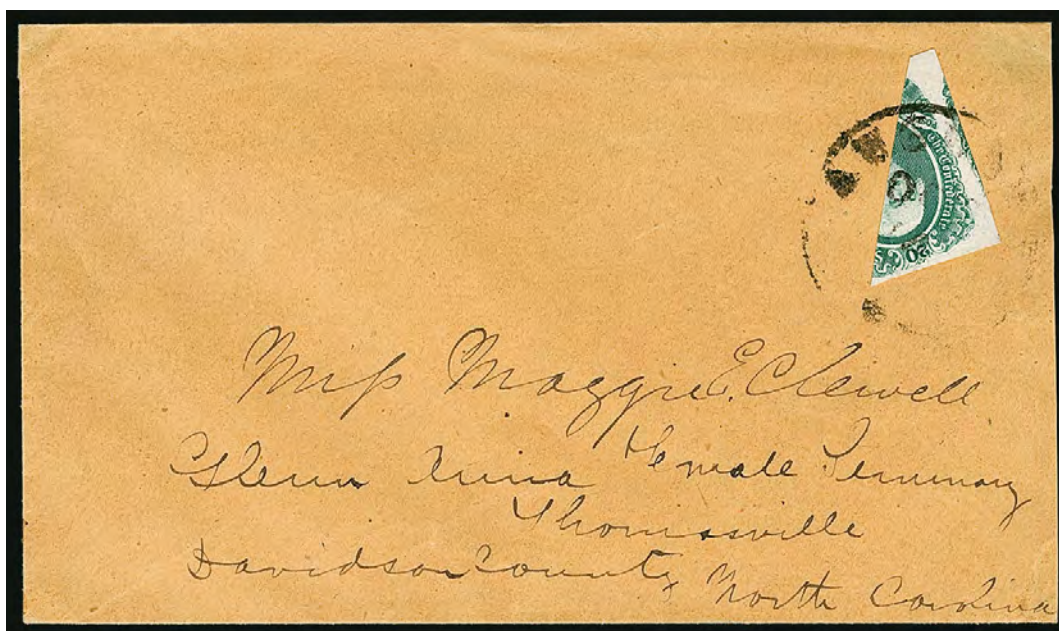 the Confederate
20
Miss Maggie E. Clewell
Glenn Anna Female Seminary
Thomasville
Davidson County North Carolina